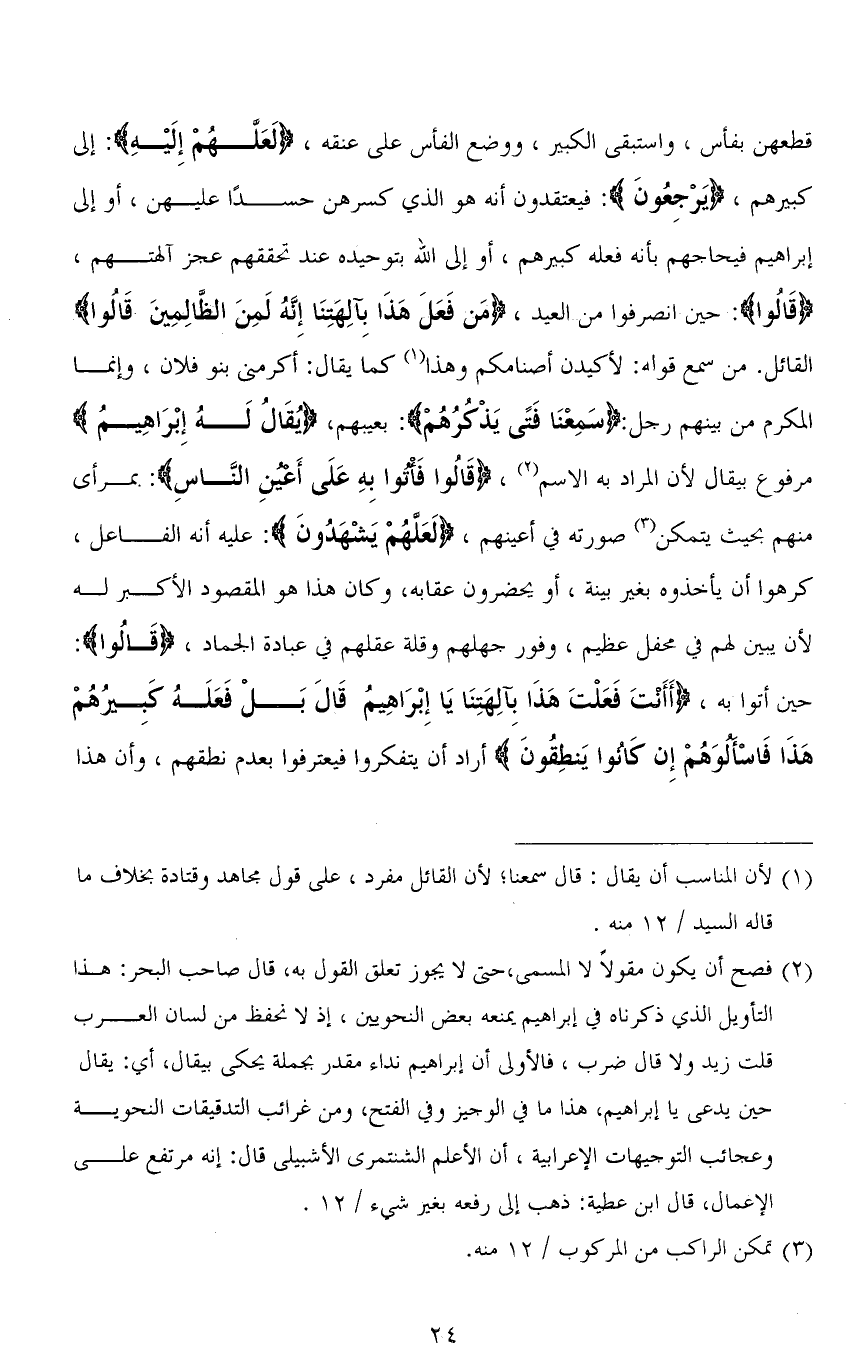 قطعهن بفأس ، واستبقى الكبير ، ووضع الفأس على عنقه ، ﴿لَعَلَّهُمْ إِلَيْهِ﴾: إلى
كبيرهم ، ﴿يَرْجِعُونَ ﴾: فيعتقدون أنه هو الذي كسرهن حسدًا عليهن ، أو إلى
إبراهيم فيحاجهم بأنه فعله كبيرهم ، أو إلى الله بتوحيده عند تحققهم عجز آلهتهم ،
﴿قَالُوا﴾: حين انصرفوا من العيد ، ﴿مَن فَعَلَ هَذَا بِآلِهَتِنَا إِنَّهُ لَمِنَ الظَّالِمِينَ قَالُوا﴾
القائل. من سمع قوله: لأكيدن أصنامكم وهذا(١) كما يقال: أكرمني بنو فلان ، وإنما
المكرم من بينهم رجل:﴿سَمِعْنَا فَتًى يَذْكُرُهُمْ﴾: بعيبهم، ﴿يُقَالُ لَهُ إِبْرَاهِيمُ ﴾
مرفوع بيقال لأن المراد به الاسم(٢) ، ﴿قَالُوا فَأْتُوا بِهِ عَلَى أَعْيُنِ النَّاسِ﴾: بمرأى
منهم بحيث يتمكن(٣) صورته في أعينهم ، ﴿لَعَلَّهُمْ يَشْهَدُونَ ﴾: عليه أنه الفاعل ،
كرهوا أن يأخذوه بغير بينة ، أو يحضرون عقابه، وكان هذا هو المقصود الأكبر له
لأن يبين لهم في محفل عظيم ، وفور جهلهم وقلة عقلهم في عبادة الجماد ، ﴿قَالُوا﴾:
حين أتوا به ، ﴿أَأَنْتَ فَعَلْتَ هَذَا بِآلِهَتِنَا يَا إِبْرَاهِيمُ قَالَ بَلْ فَعَلَهُ كَبِيرُهُمْ
هَذَا فَاسْأَلُوهُمْ إِن كَانُوا يَنطِقُونَ ﴾ أراد أن يتفكروا فيعترفوا بعدم نطقهم ، وأن هذا
(١) لأن المناسب أن يقال : قال سمعنا؛ لأن القائل مفرد ، على قول مجاهد وقتادة بخلاف ما
قاله السيد / ١٢ منه .
(٢) فصح أن يكون مقولاً لا المسمى،حتى لا يجوز تعلق القول به، قال صاحب البحر: هذا
التأويل الذي ذكرناه في إبراهيم يمنعه بعض النحويين ، إذ لا تحفظ من لسان العرب
قلت زيد ولا قال ضرب ، فالأولى أن إبراهيم نداء مقدر بجملة يحكى بيقال، أي: يقال
حين يدعى يا إبراهيم، هذا ما في الوجيز وفي الفتح، ومن غرائب التدقيقات النحوية
وعجائب التوجيهات الإعرابية ، أن الأعلم الشنتمرى الأشبيلى قال: إنه مرتفع على
الإعمال، قال ابن عطية: ذهب إلى رفعه بغير شيء / ١٢ .
(٣) تمكن الراكب من المركوب / ١٢ منه.
٢٤